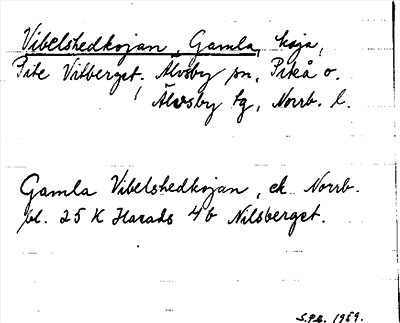 Vibelshedkojan, Gamla, koja,
Pite Vitberget. Älvsby sn, Piteå o.
Älvsby tg, Norrb. l.
Gamla Vibelshedkojan, ek. Norrb.
bl. 25 K Harads 4b Nilsberget.
S.P.B. 1959.